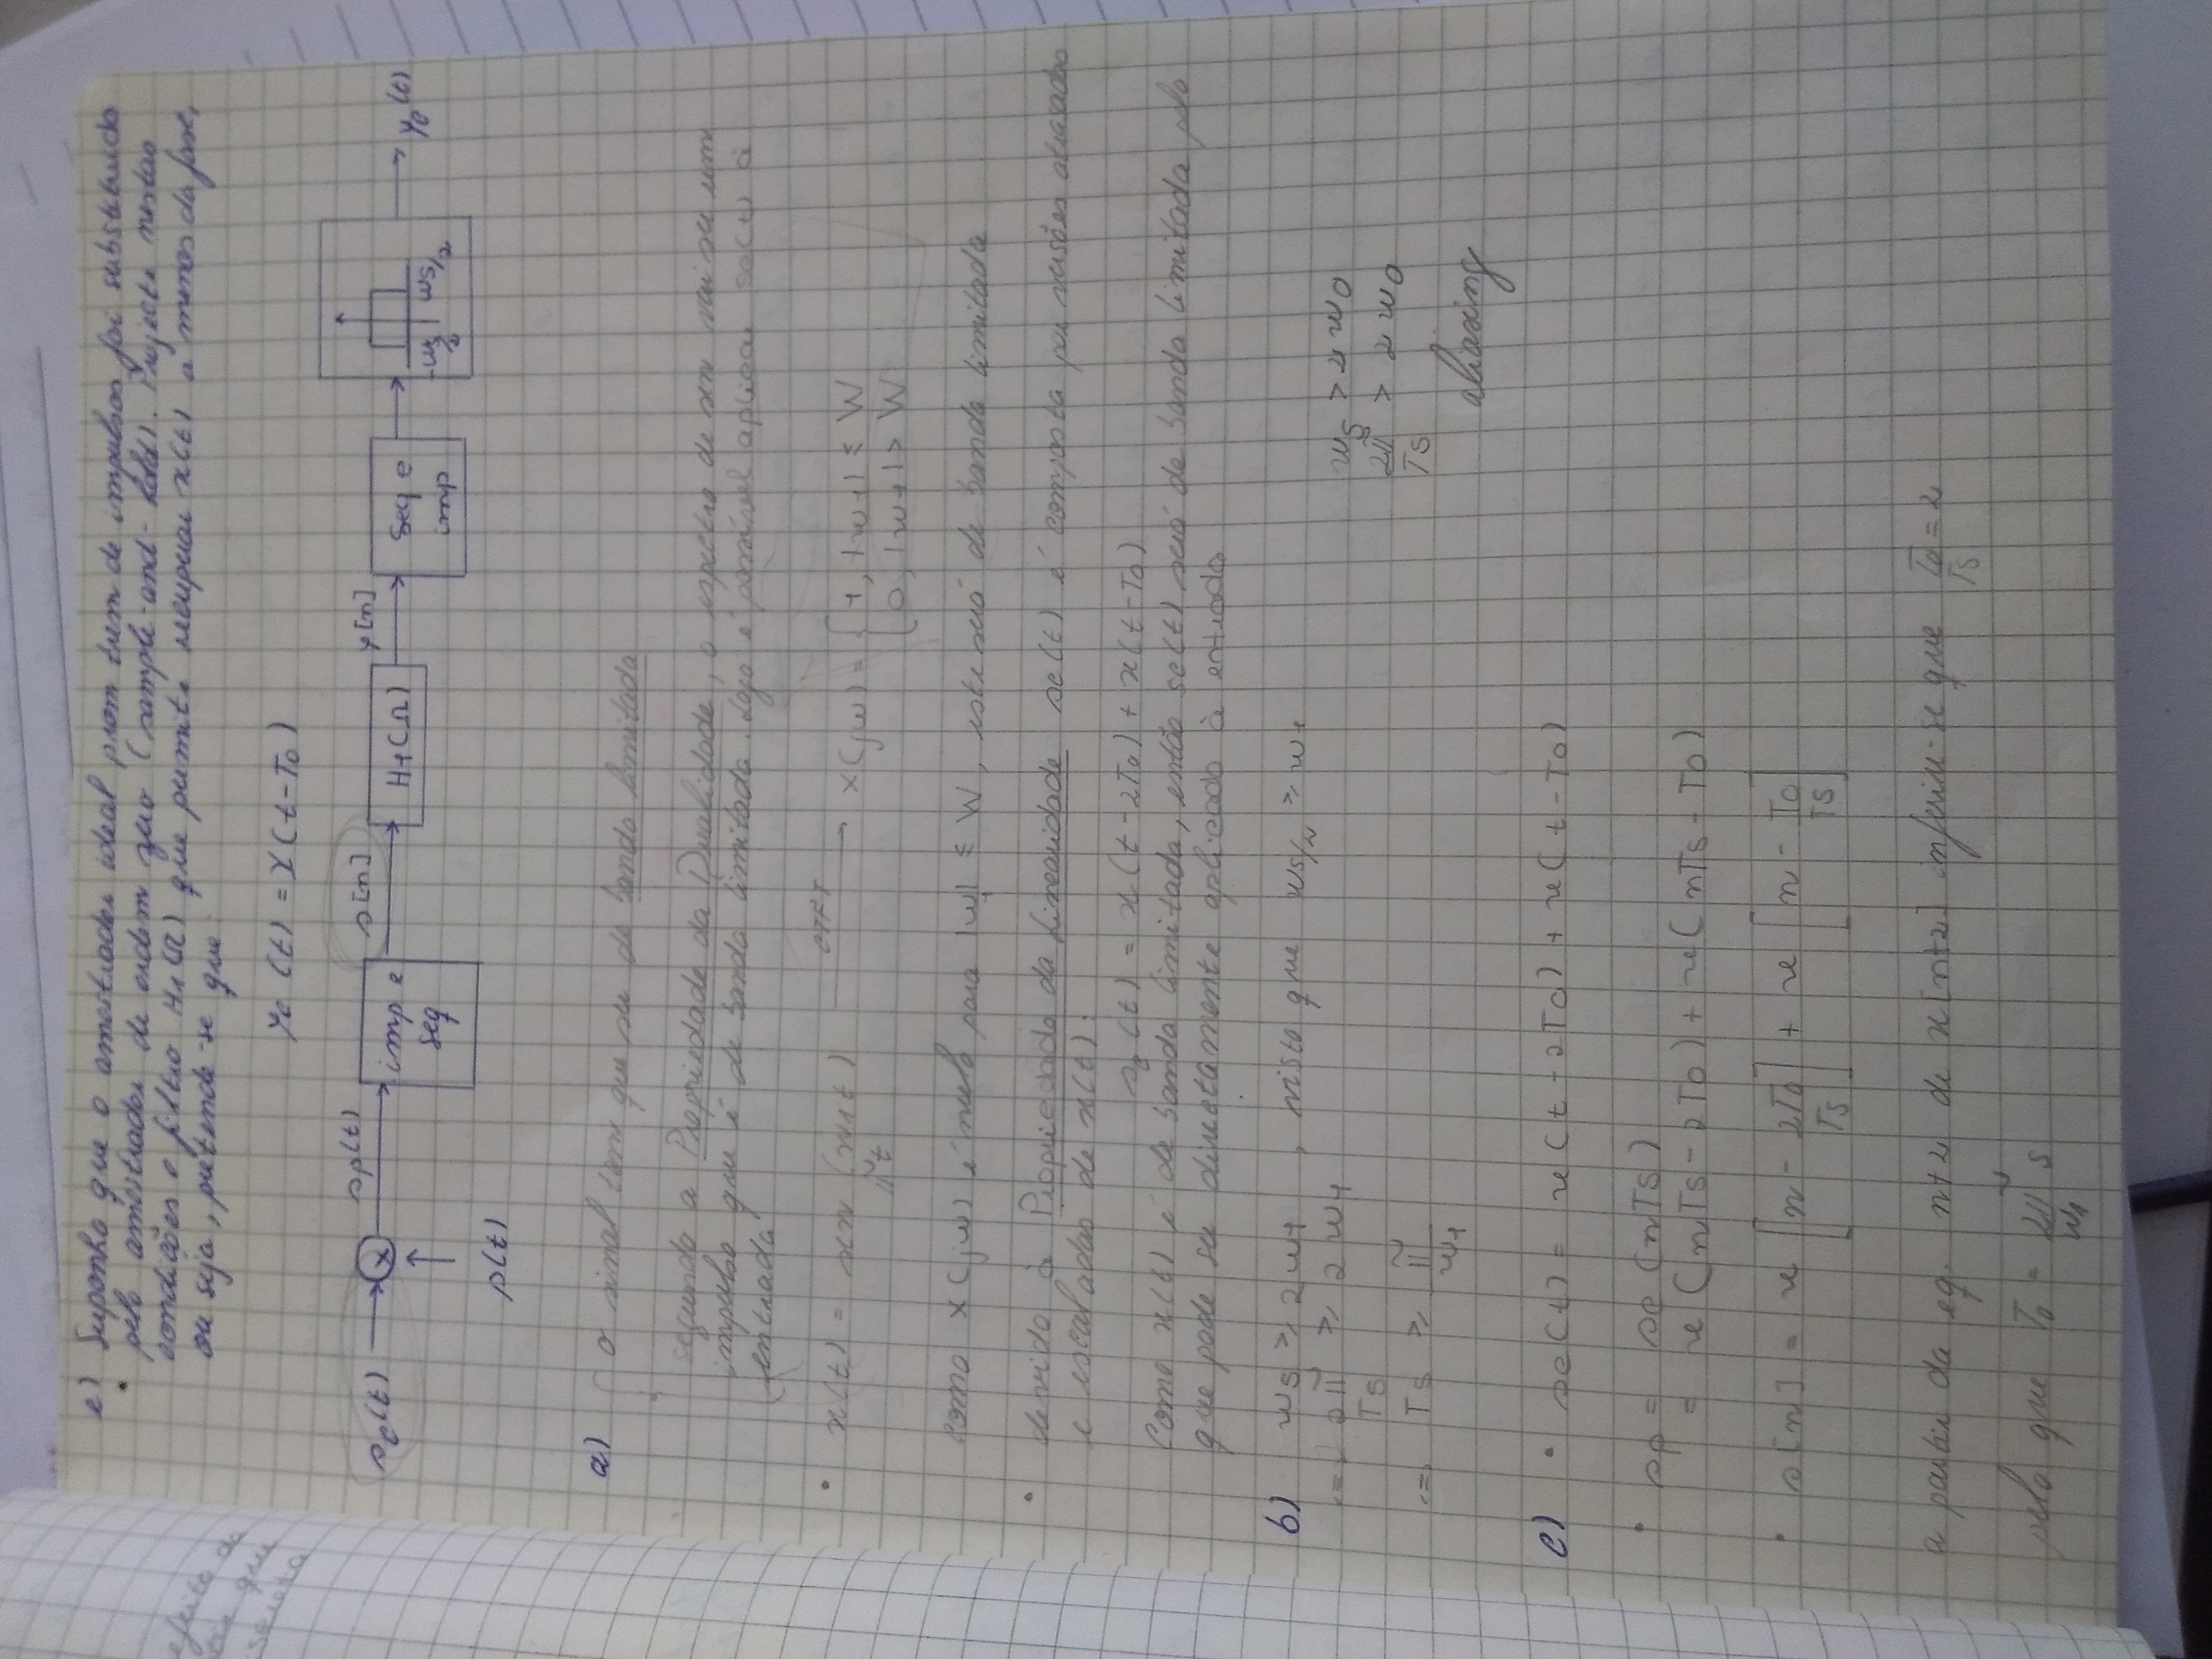 e) Suponha que o amostrador ideal p trem de impulsos foi substituído
pelo amostrador de ordem zero (sample-and-hold). Projecte nestas
condições o filtro H1(Ω) que permite recuperar x(t) a menos da fase,
ou seja, pretende-se que
yc(t) = X(t-T0)
sc(t)
×
sp(t)
imp e
seq
s[n]
H1(Ω)
y[n]
seq e
imp
-ws/2
ws/2
yc(t)
p(t)
a) o sinal tem que ser de banda limitada
segundo a Propriedade da Dualidade, o espectro de sen vai ser um
impulso que é de banda limitada. Logo é possível aplicar sc(t) à
entrada
• x(t) = sen (w1t)
πt
CTFT
X(jw) = { 1, |w1| ≤ W
0, |w1| > W
como X(jw) é nulo para |w1| ≤ W, este será de banda limitada
• devido à Propriedade da Linearidade sc(t) é composta por versões atrasadas
e escaladas de x(t):
sc(t) = x(t-2T0) + x(t-T0)
como x(t) é de banda limitada, então sc(t) será de banda limitada pelo
que pode ser directamente aplicado à entrada
b) ws ≥ 2w1 , visto que ws/2 ≥ w1
<=> 2π/Ts ≥ 2w1
<=> Ts ≥ π/w1
ws > 2w0
2π/Ts > 2w0
aliasing
c) • sc(t) = x(t-2T0) + x(t-T0)
• sp = sc(nTs)
= x(nTs-2T0) + x(nTs-T0)
• s[n] = x[n - 2T0/Ts] + x[n - T0/Ts]
a partir da eq. n+2 de x[n+2] infere-se que T0/Ts = 2
pelo que T0 = 2π/w1 s
efeito de
que